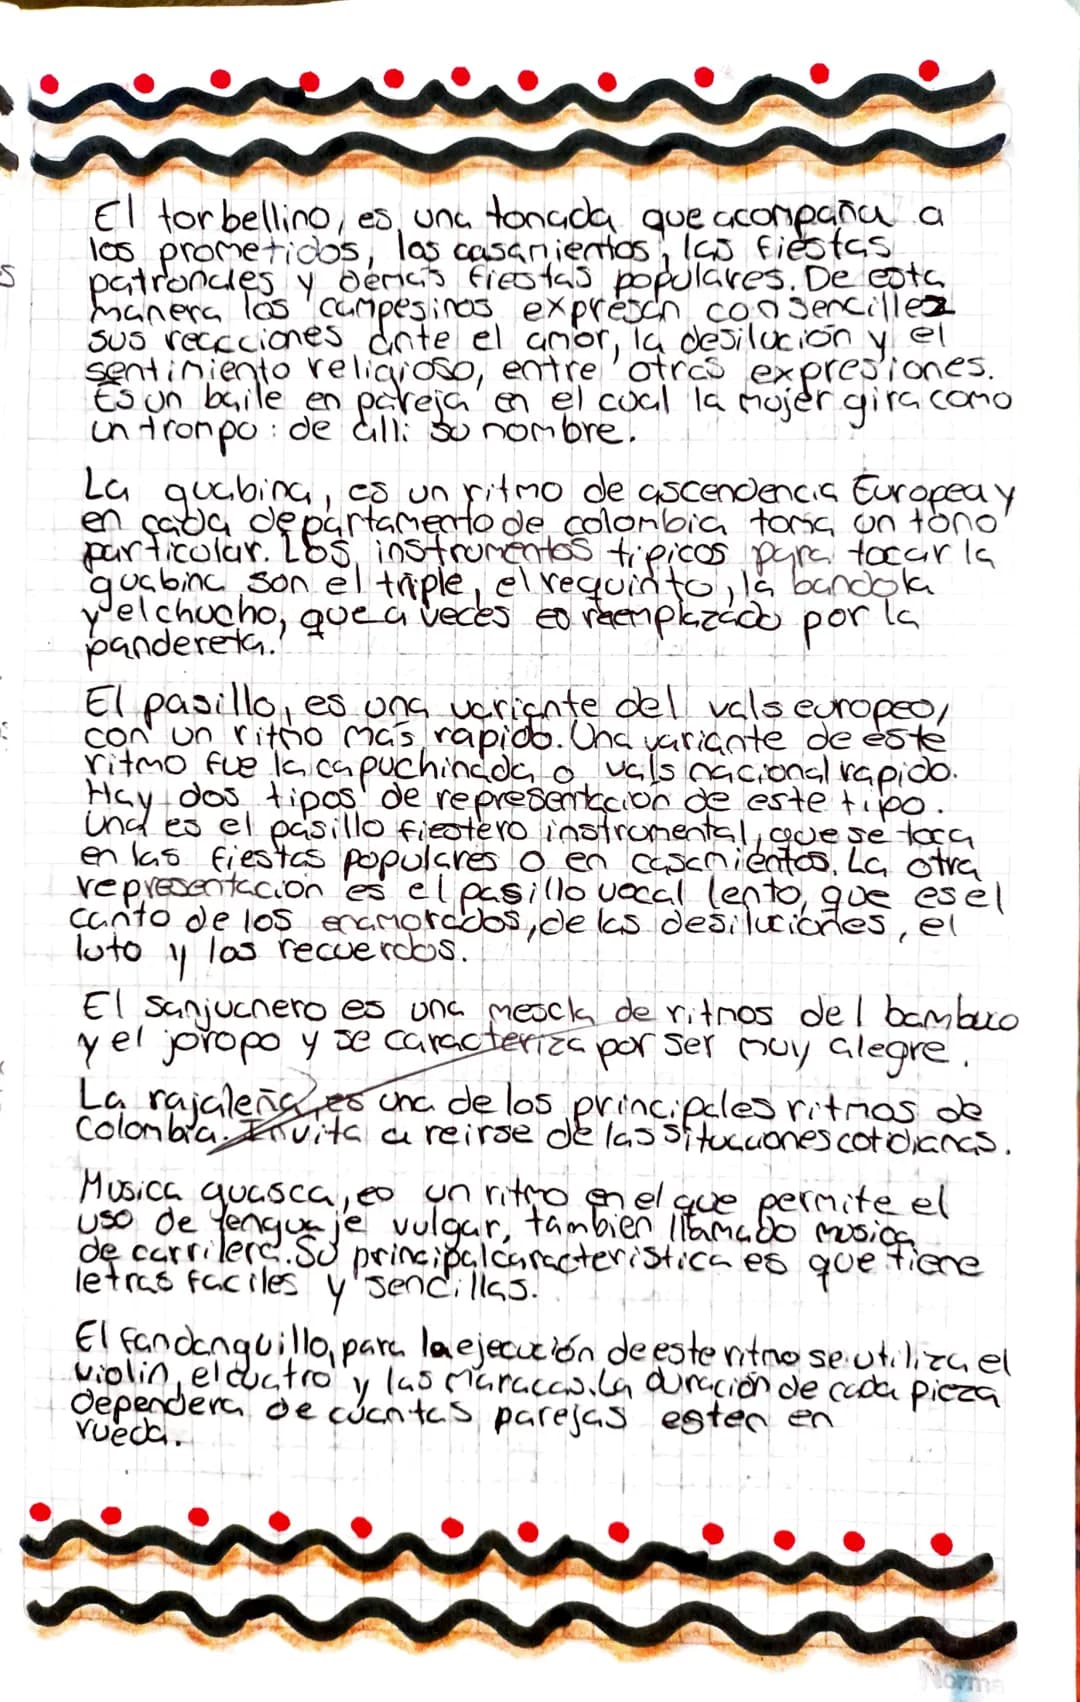 El torbellino, es una tonada que acompaña a
los prometidos, los casamientos, las fiestas
patronales y demás fiestas populares. De esta
manera los campesinos expresan con sencillez
sus reacciones ante el amor, la desilución y el
sentimiento religioso, entre otras expresiones.
Es un baile en pareja en el cual la mujer gira como
un trompo: de alli su nombre.
La guabina, es un ritmo de ascendencia Europea y
en cada departamento de colombia toma un tono
particular. Los instrumentos tipicos para tocar la
guabina son el triple, el requinto, la bandola
y el chucho, que a veces es reemplazado por la
pandereta.
El pasillo, es una variante del vals europeo,
con un ritmo más rapido. Una variante de este
ritmo fue la capuchinada o vals nacional rapido.
Hay dos tipos de representacion de este tipo.
Una es el pasillo fiestero instrumental, que se toca
en las fiestas populares o en casamientos. La otra
representacion es el pasillo vocal lento, que es el
canto de los enamorados, de las desiluciones, el
luto y los recuerdos.
El sanjuanero es una mescla de ritmos del bambuco
y el joropo y se caracteriza por ser muy alegre.
La rajaleña, es una de los principales ritmos de
Colombia. Invita a reirse de las situaciones cotidianas.
Musica guasca, es un ritmo en el que permite el
uso de lenguaje vulgar, tambien llamado musica
de carrilera. Su principal caracteristica es que tiene
letras faciles y sencillas.
El fandanguillo, para la ejecución de este ritmo se utiliza el
violin, el cuatro y las maracas. La duración de cada pieza
dependera de cuantas parejas esten en
rueda.
Norma